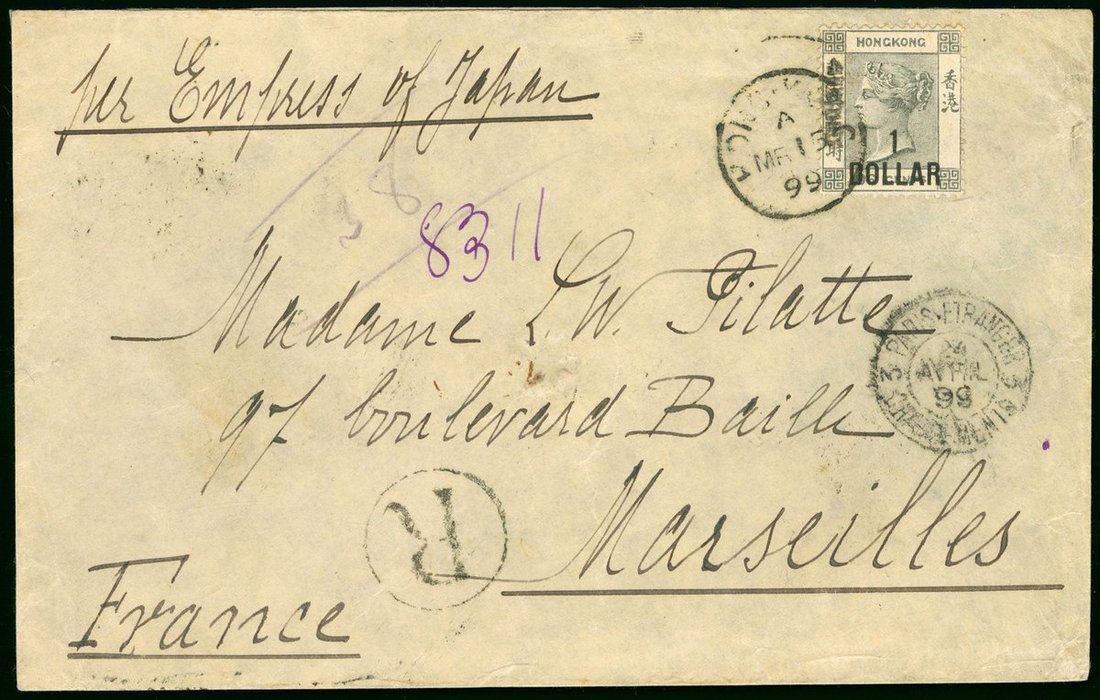 per Empress of Japan
HONGKONG
香港
1
DOLLAR
A
MR 15
99
8311
Madame L.W. Pilatte
97 boulevard Baille
Marseilles
France
R
3 PARIS-ETRANGER 3
AVRIL
99